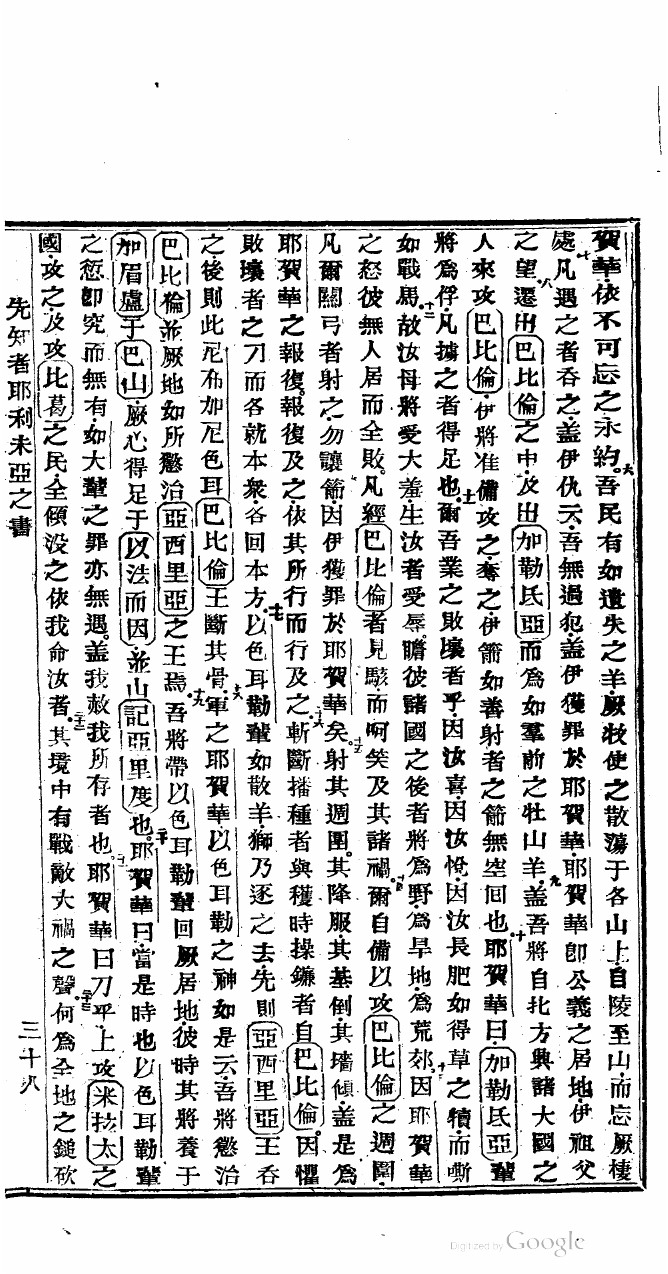 賀華、依不可忘之永約。六吾民有如遺失之羊、厥牧使之散蕩于各山上、自陵至山、而忘厥棲
處。七凡遇之者吞之、蓋伊仇云、吾無過犯、蓋伊獲罪於耶賀華、耶賀華卽公義之居地、伊祖父
之望。八遷出巴比倫之中、及出加勒氏亞、而爲如羣前之牡山羊。九蓋吾將自北方興諸大國之
人來攻巴比倫、伊將准備攻之、奪之、伊箭如善射者之箭、無空回也。十耶賀華曰、加勒氏亞輩
將爲俘、凡擄之者得足也。十一爾吾業之敗壞者乎、因汝喜、因汝悅、因汝長肥如得草之犢、而嘶
如戰馬。十二故汝母將受大羞、生汝者受辱。瞻彼諸國之後者、將爲野、爲旱地、爲荒郊。十三因耶賀華
之怒、彼無人居而全敗。凡經巴比倫者見駭、而呵笑及其諸禍。十四爾自備以攻巴比倫之週圍、
凡爾關弓者射之、勿讓箭、因伊獲罪於耶賀華矣。十五射其週圍、其降服、其基倒、其墻傾、蓋是爲
耶賀華之報復。報復及之、依其所行而行及之。十六斬斷播種者、與穫時操鐮者、自巴比倫。因懼
敗壞者之刀、而各就本衆、各回本方。十七以色耳勒輩如散羊、獅乃逐之去、先則亞西里亞王吞
之、後則此尼布加尼色耳巴比倫王斷其骨。十八軍之耶賀華以色耳勒之神如是云、吾將懲治
巴比倫並厥地、如所懲治亞西里亞之王焉。十九吾將帶以色耳勒輩回厥居地、彼時其將養于
加眉盧于巴山、厥心得足于以法而因並山記亞里度也。二十耶賀華曰、當是時也、以色耳勒輩
之愆卽究而無有、如大輩之罪亦無遇。蓋我赦我所存者也。二一耶賀華曰、刀乎、上攻米拉太之
國、攻之、及攻比葛之民、全傾沒之、依我命汝者。二二其境中有戰敵大禍之聲。二三何爲全地之鎚砍
先知者耶利未亞之書
三十八
Digitized by Google